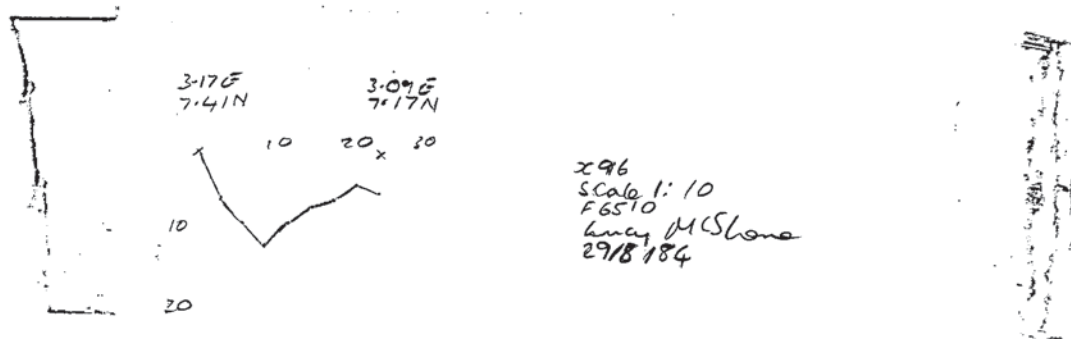 3.17E 3.09E
7.41N 7.17N
10 20 30
10
20
x 916
Scale 1:10
F6510
Lucy McShane
29/8/84